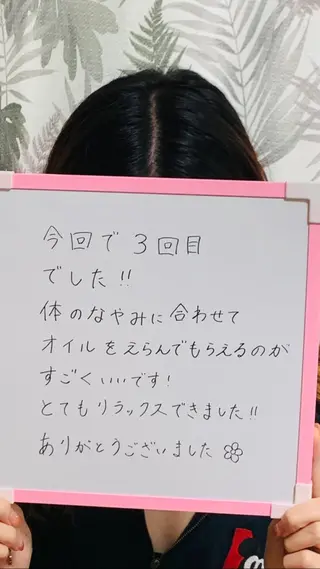 今回で3回目
でした!!
体のなやみに合わせて
オイルをえらんでもらえるのが
すごくいいです!
とてもリラックスできました!!
ありがとうございました